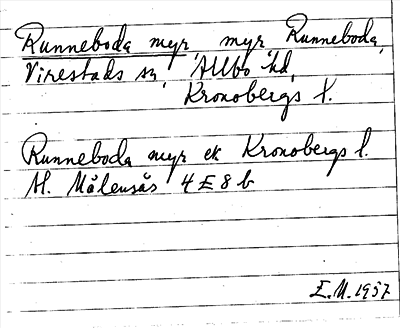 Runneboda myr, myr Runneboda,
Virestads sn, Allbo hd,
Kronobergs l.
Runneboda myr ek Kronobergs l.
Al. Målensås 4 E 8 b
E.M. 1957